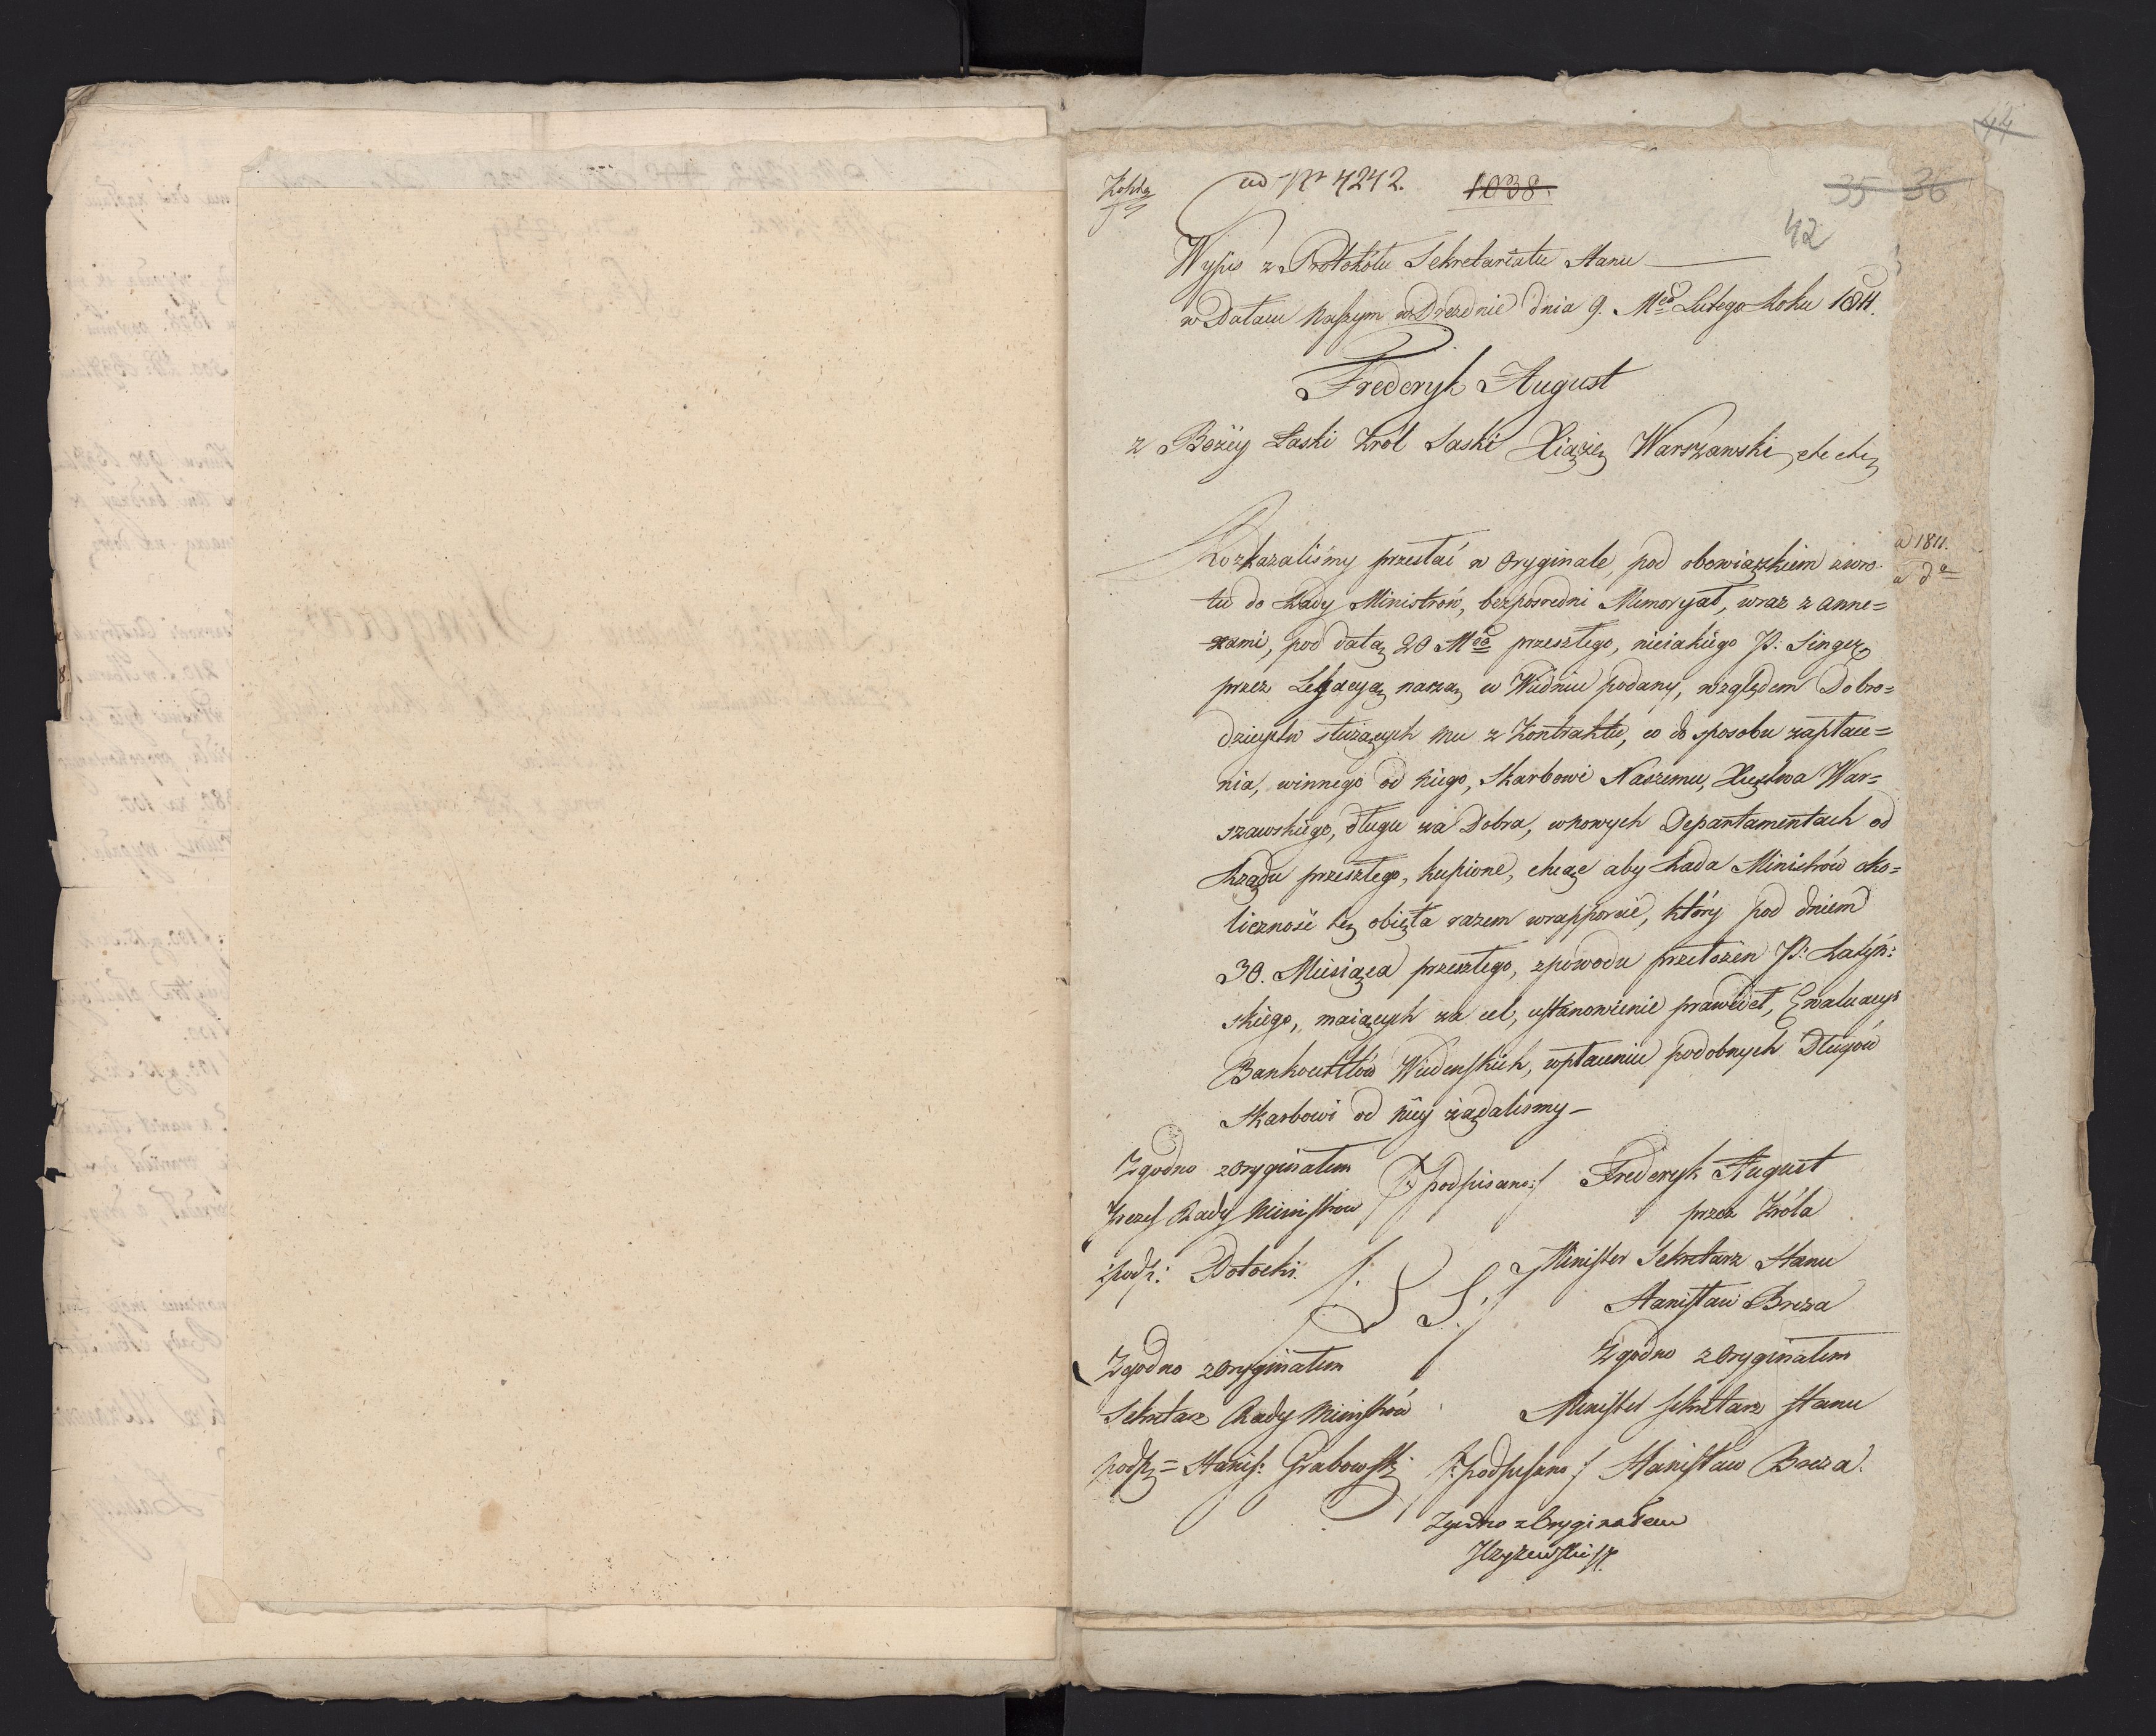 44
Kopia
ad Nr 4242. 1038.
35 36
42
Wypis z Protokółu Sekretariatu Stanu
w Pałacu Naszym w Dreźnie dnia 9. Mca Lutego Roku 1811.
Frederyk August
z Bożey Łaski Król Saski Xiążę Warszawski etc etc
Rozkazaliśmy przesłać w Oryginale, pod obowiązkiem zwro-
tu do Rady Ministrów, bezpośredni Memoryał, wraz z anne=
xami, pod datą 20 Mca przeszłego, nieiakiego P. Singer
przez Legacyą naszą w Widniu podany, względem Dobro=
dzieystw służących mu z Kontraktu, co do sposobu zapłace=
nia, winnego od niego, Skarbowi Naszemu, Xięstwa War=
szawskiego, długu za Dobra, w nowych Departamentach od
Rządu przeszłego, kupione, chcąc aby Rada Ministrów oko=
liczność tę obięła razem w rapporcie, który pod dniem
30. Miesiąca przeszłego, z powodu przełożeń P. Łatyń:
skiego, maiących za cel, ustanowienie prawideł, Ewaluacyi
Bankocetlów Wiedeńskich, w płaceniu podobnych Długów
Skarbowi od niey żądaliśmy -
ad 1811.
Zgodno z Oryginałem
Prezes Rady Ministrów
podp: Potocki.
/:podpisano:/ Frederyk August
przez Króla
Minister Sekretarz Stanu
Stanisław Breza
/: L S :/
Zgodno z Oryginałem
Sekretarz Rady Ministrów
podp = Stanis: Grabowski
Zgodno z Oryginałem
Minister Sekretarz Stanu
/:podpisano:/ Stanisław Breza.
Zgodno z Oryginałem